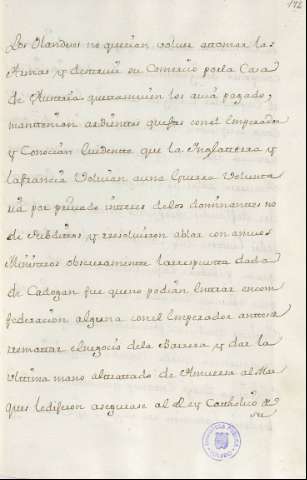 172
Los Olandeses no querian volver atomar las
Armas y destruir su Comercio por la Casa
de Austria que tan mal los avia pagado,
mantenian ardientes quejas con el Emperador
y Conocian evidente que la Inglaterra y
la francia Volvian auna Guerra Volunta
ria por privado interes delos dominantes no
de Subditos, y resolvieron ablar con ambos
Ministros obscuramente la respuesta dada
de Cadogan fue que no podian Entrar en con
federacion alguna con el Emperador antes de
rematar el negocio dela Barrera y dar la
Ultima mano altratado de Amveres al Mar
ques le dijeron asegurase al Rey Catholico de
su
BIBLIOTECA PUBLICA
TOLEDO